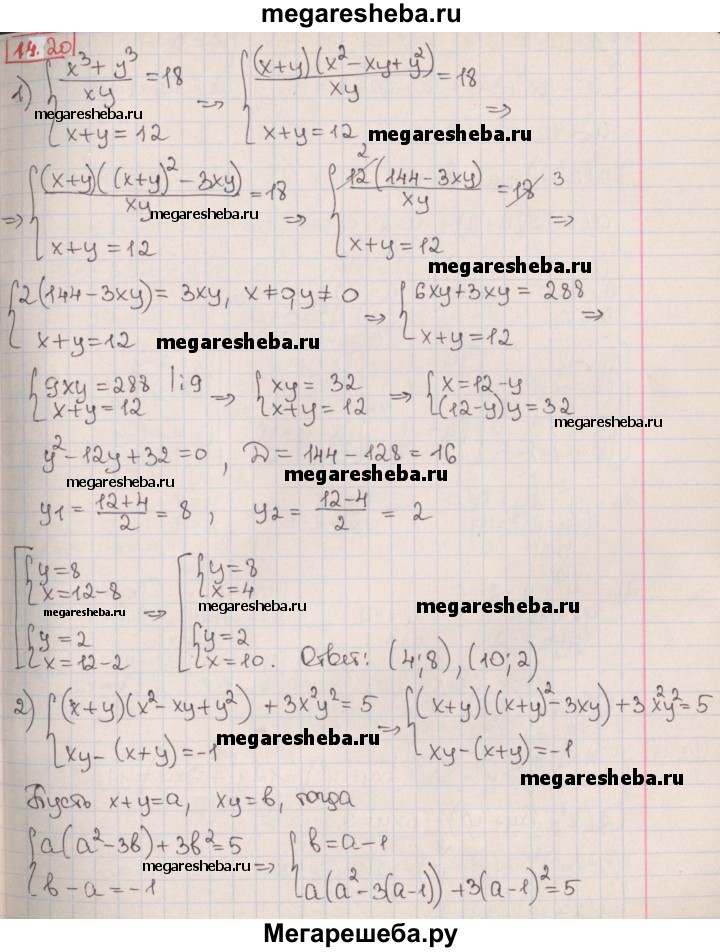 megaresheba.ru
14.20
1) { (x³ + y³)/(xy) = 18 ; x + y = 12 ⇒ { (x+y)(x² - xy + y²)/(xy) = 18 ; x + y = 12 ⇒
megaresheba.ru
megaresheba.ru
⇒ { (x+y)((x+y)² - 3xy)/(xy) = 18 ; x + y = 12 ⇒ { 12 2 (144 - 3xy)/(xy) = 18 3 ; x + y = 12 ⇒
megaresheba.ru
megaresheba.ru
{ 2(144 - 3xy) = 3xy, x ≠ 0 y ≠ 0 ; x + y = 12 ⇒ { 6xy + 3xy = 288 ; x + y = 12 ⇒
megaresheba.ru
{ 9xy = 288 |:9 ; x + y = 12 ⇒ { xy = 32 ; x + y = 12 ⇒ { x = 12 - y ; (12 - y)y = 32
megaresheba.ru
y² - 12y + 32 = 0, D = 144 - 128 = 16
megaresheba.ru
megaresheba.ru
y1 = (12+4)/2 = 8 , y2 = (12-4)/2 = 2
megaresheba.ru
[ { y = 8 ; x = 12 - 8 ⇒ [ { y = 8 ; x = 4
megaresheba.ru
megaresheba.ru
megaresheba.ru
{ y = 2 ; x = 12 - 2 { y = 2 ; x = 10. Ответ: (4; 8), (10; 2)
megaresheba.ru
2) { (x+y)(x² - xy + y²) + 3x²y² = 5 ; xy - (x+y) = -1 ⇒ { (x+y)((x+y)² - 3xy) + 3x²y² = 5 ; xy - (x+y) = -1
megaresheba.ru
megaresheba.ru
Пусть x+y = a, xy = b, тогда
megaresheba.ru
{ a(a² - 3b) + 3b² = 5 ; b - a = -1 ⇒ { b = a - 1 ; a(a² - 3(a-1)) + 3(a-1)² = 5
megaresheba.ru
Мегарешеба.ру